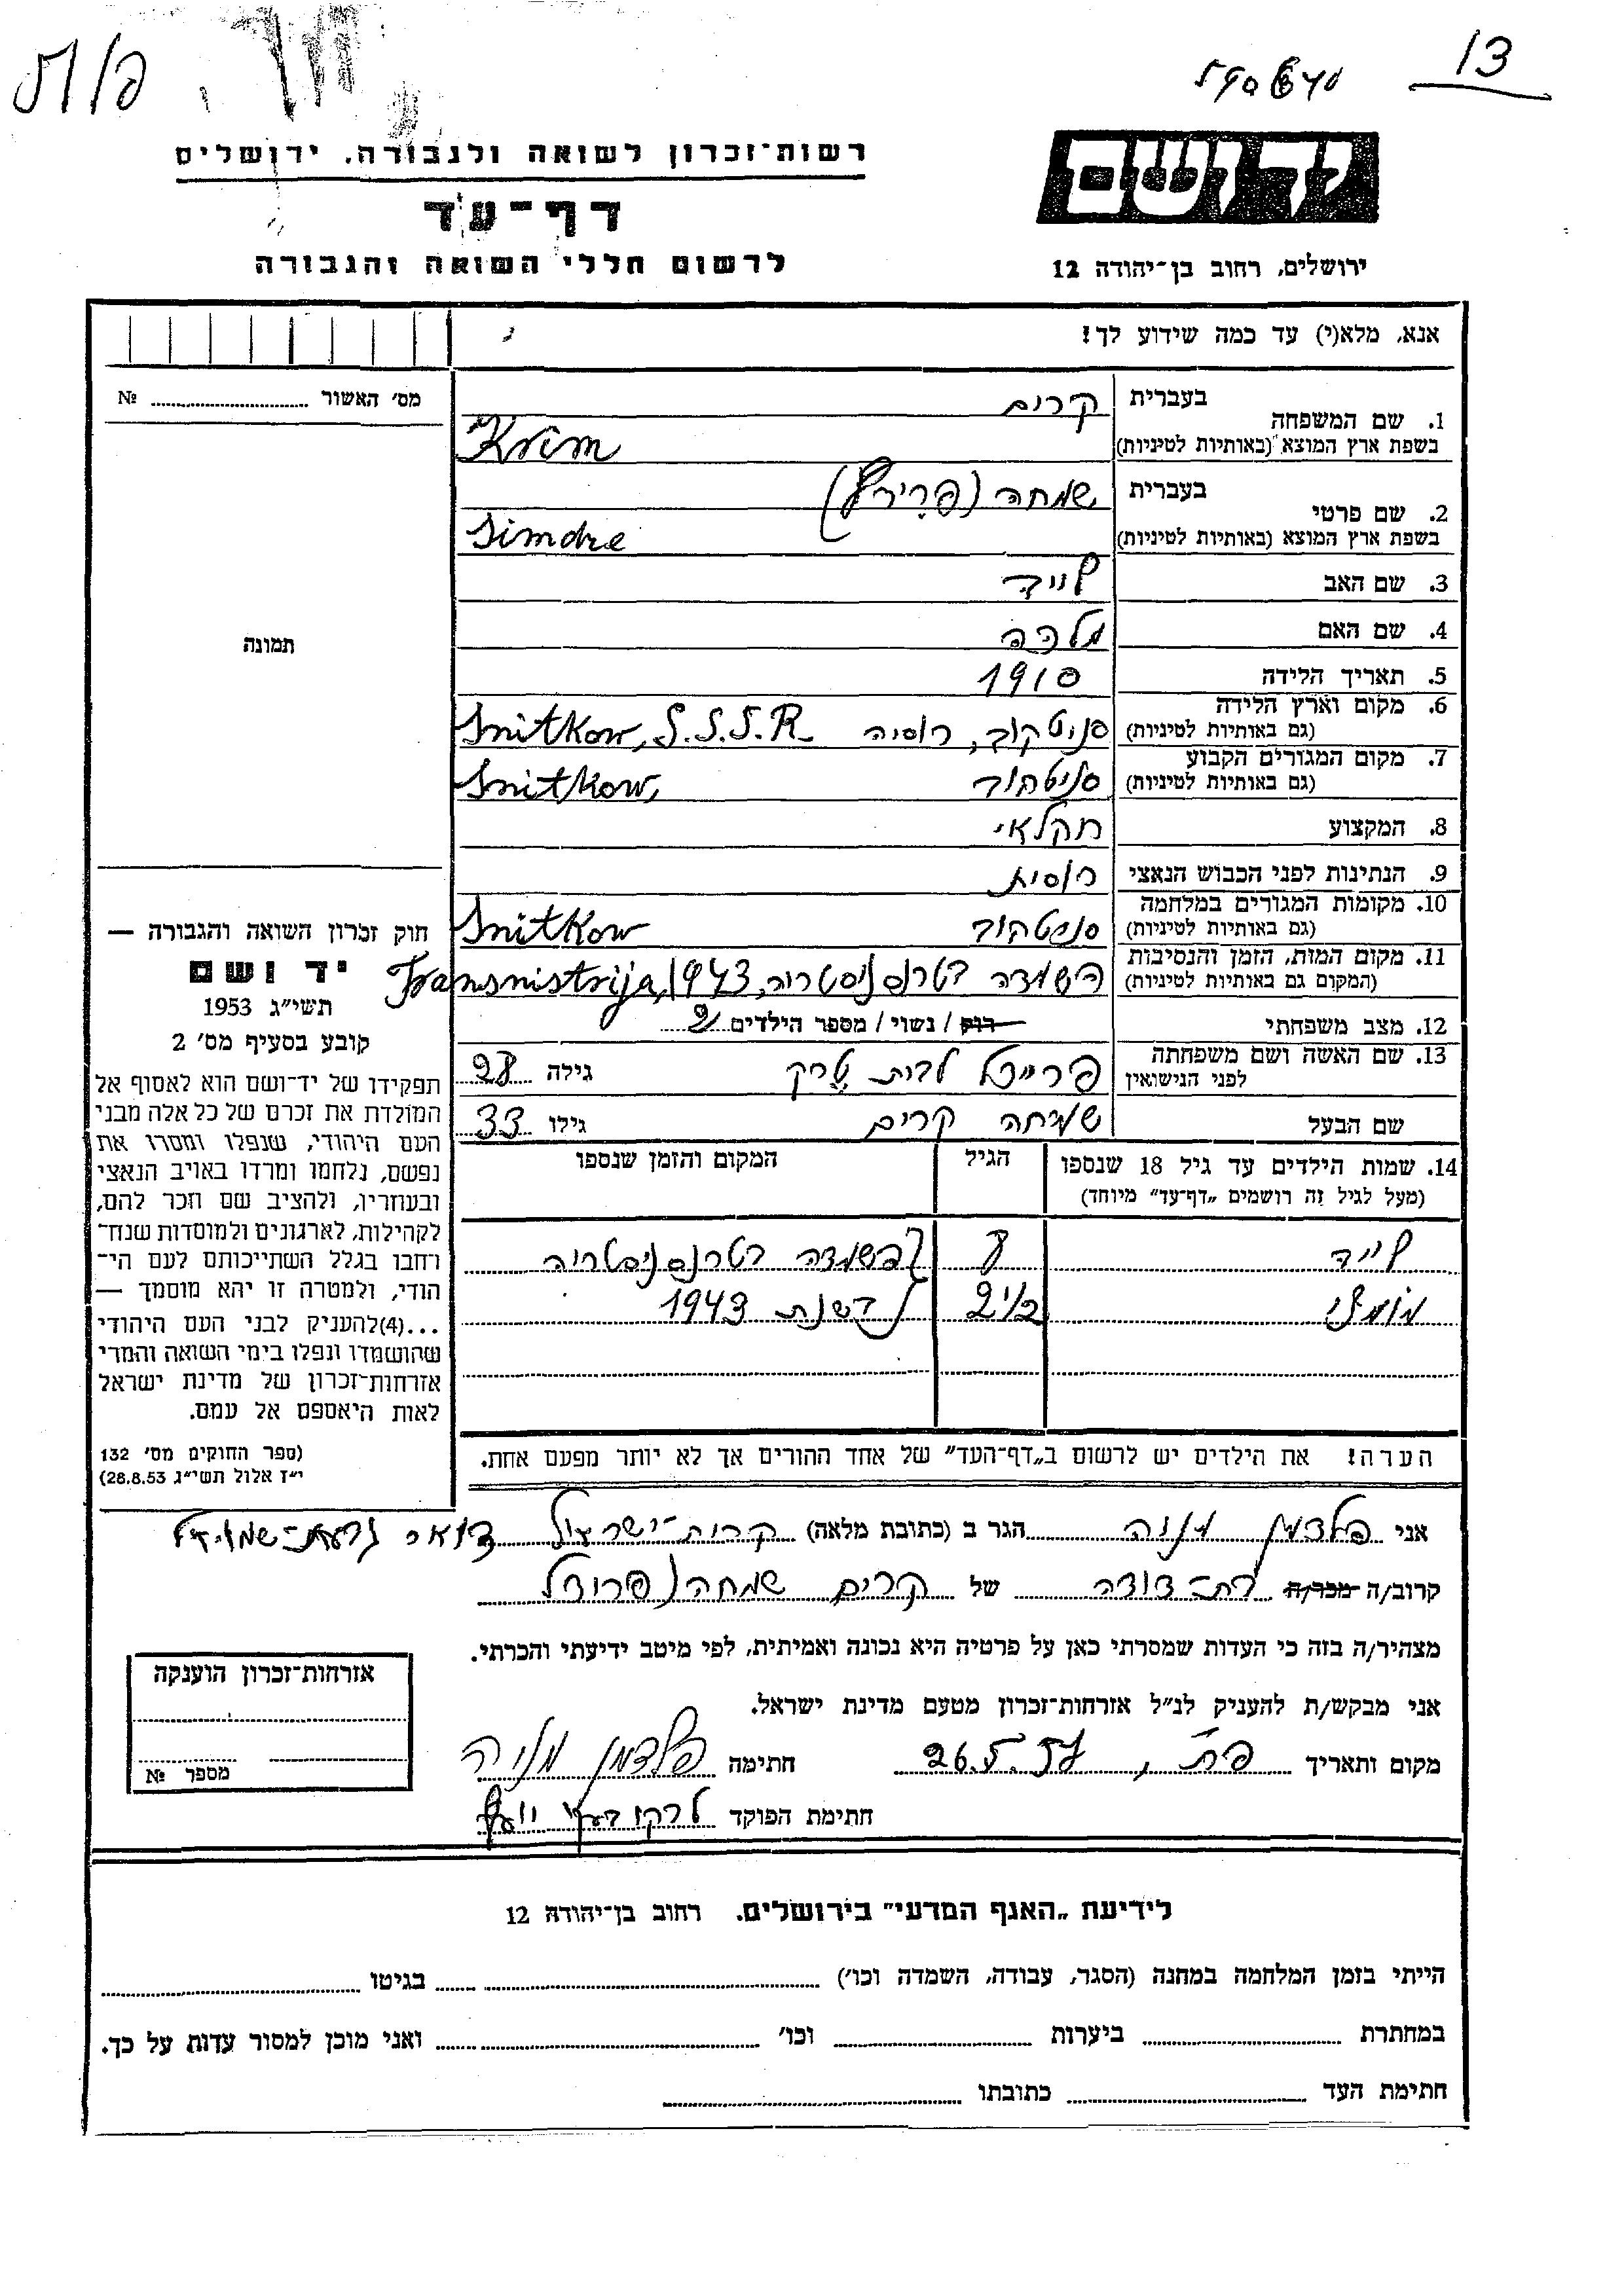 13
פ/ת
רשות־זכרון לשואה ולגבורה, ירושלים
דף־עד
לרשום חללי השואה והגבורה
יד ושם
ירושלים, רחוב בן־יהודה 12
אנא, מלא(י) עד כמה שידוע לך!
מס' האשור № 
1. שם המשפחה בעברית קרים
בשפת ארץ המוצא (באותיות לטיניות) Krim
2. שם פרטי בעברית שמחה
בשפת ארץ המוצא (באותיות לטיניות) Simche
3. שם האב לייב
4. שם האם מלכה
5. תאריך הלידה 1910
6. מקום וארץ הלידה (גם באותיות לטיניות) סניטקוב, רוסיה Snitkow, S.S.S.R.
7. מקום המגורים הקבוע (גם באותיות לטיניות) סניטקוב Snitkow,
8. המקצוע חקלאי
9. הנתינות לפני הכבוש הנאצי רוסית
10. מקומות המגורים במלחמה (גם באותיות לטיניות) סניטקוב Snitkow
11. מקום המות, הזמן והנסיבות (המקום גם באותיות לטיניות) השמדה בטרנסניסטריה, 1943 Transnistrija,
12. מצב משפחתי רוק / נשוי / מספר הילדים 2
13. שם האשה ושם משפחתה לפני הנישואין פרייבל לבית גילה 28
שם הבעל שמחה קרים גילו 33
14. שמות הילדים עד גיל 18 שנספו הגיל המקום והזמן שנספו
(מעל לגיל זה רושמים „דף־עד” מיוחד)
לייב השמדה בטרנסניסטריה
בשנת 1943
הערה! את הילדים יש לרשום ב„דף־העד” של אחד ההורים אך לא יותר מפעם אחת.
תמונה
חוק זכרון השואה והגבורה —
יד ושם
תשי״ג 1953
קובע בסעיף מס' 2
תפקידו של יד־ושם הוא לאסוף אל
המולדת את זכרם של כל אלה מבני
העם היהודי, שנפלו ומסרו את
נפשם, נלחמו ומרדו באויב הנאצי
ובעוזריו, ולהציב שם וזכר להם,
לקהילות, לארגונים ולמוסדות שנח־
רחבו בגלל השתייכותם לעם הי־
הודי, ולמטרה זו יהא מוסמך —
...(4)להעניק לבני העם היהודי
שהושמדו ונפלו בימי השואה והמרי
אזרחות־זכרון של מדינת ישראל
לאות היאספם אל עמם.
(ספר החוקים מס' 132
י״ז אלול תשי״ג 28.8.53)
אני פלדמן מניה הגר ב (כתובת מלאה) קרית־ישראל דואר גבעת־שמואל
קרוב/ה מכר/ה בת־דודה של קרים שמחה
מצהיר/ה בזה כי העדות שמסרתי כאן על פרטיה היא נכונה ואמיתית, לפי מיטב ידיעתי והכרתי.
אני מבקש/ת להעניק לנ״ל אזרחות־זכרון מטעם מדינת ישראל.
מקום ותאריך פת, 26.5.57 חתימה פלדמן מניה
חתימת הפוקד
אזרחות־זכרון הוענקה
מספר №
לידיעת „האגף המדעי” בירושלים. רחוב בן־יהודה 12
הייתי בזמן המלחמה במחנה (הסגר, עבודה, השמדה וכו') בגיטו
במחתרת ביערות וכו' ואני מוכן למסור עדות על כך.
חתימת העד כתובתו